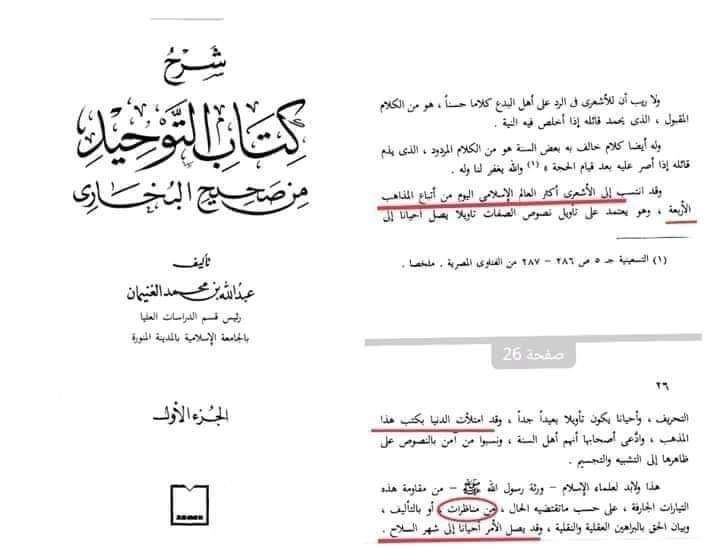 شرح
كتاب التوحيد
من صحيح البخارى
تأليف
عبدالله بن محمد الغنيمان
رئيس قسم الدراسات العليا
بالجامعة الإسلامية بالمدينة المنورة
الجزء الأول
ولا ريب أن للأشعرى فى الرد على أهل البدع كلاما حسناً ، هو من الكلام
المقبول ، الذى يحمد قائله إذا أخلص فيه النية .
وله أيضا كلام خالف به بعض السنة هو من الكلام المردود ، الذى يذم
قائله إذا أصر عليه بعد قيام الحجة » (١) والله يغفر لنا وله .
وقد انتسب إلى الأشعرى أكثر العالم الإسلامى اليوم من أتباع المذاهب
الأربعة ، وهو يعتمد على تأويل نصوص الصفات تاويلا يصل أحيانا إلى
(١) التسعينية جـ ٥ ص ٢٨٦ – ٢٨٧ من الفتاوى المصرية . ملخصا .
صفحة 26
٢٦
التحريف ، وأحيانا يكون تأويلا بعيداً جداً ، وقد امتلأت الدنيا بكتب هذا
المذهب ، وادَّعى أصحابها أنهم أهل السنة ، ونسبوا من آمن بالنصوص على
ظاهرها إلى التشبيه والتجسيم .
هذا ولابُد لعلماء الإسلام – ورثة رسول الله ﷺ – من مقاومة هذه
التيارات الجارفة ، على حسب ماتقتضيه الحال ، من مناظرات ، أو بالتأليف ،
وبيان الحق بالبراهين العقلية والنقلية ، وقد يصل الأمر أحيانا إلى شهر السلاح .